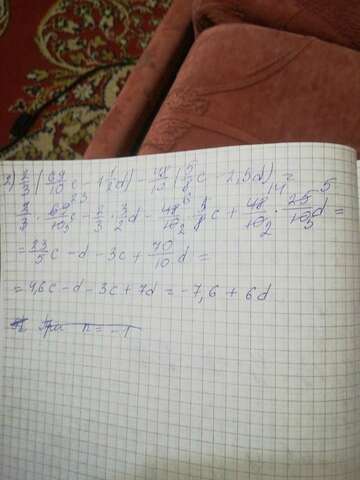 3) 2/3 (69/10 c - 1 1/2 d) - 48/10 (5/8 c - 2,5d) =
2/3 · 69/10 c - 2/3 · 3/2 d - 48/10 · 5/8 c + 48/10 · 25/10 d =
= 23/5 c - d - 3c + 70/10 d =
= 4,6c - d - 3c + 7d = -7,6 + 6d
При n = -1